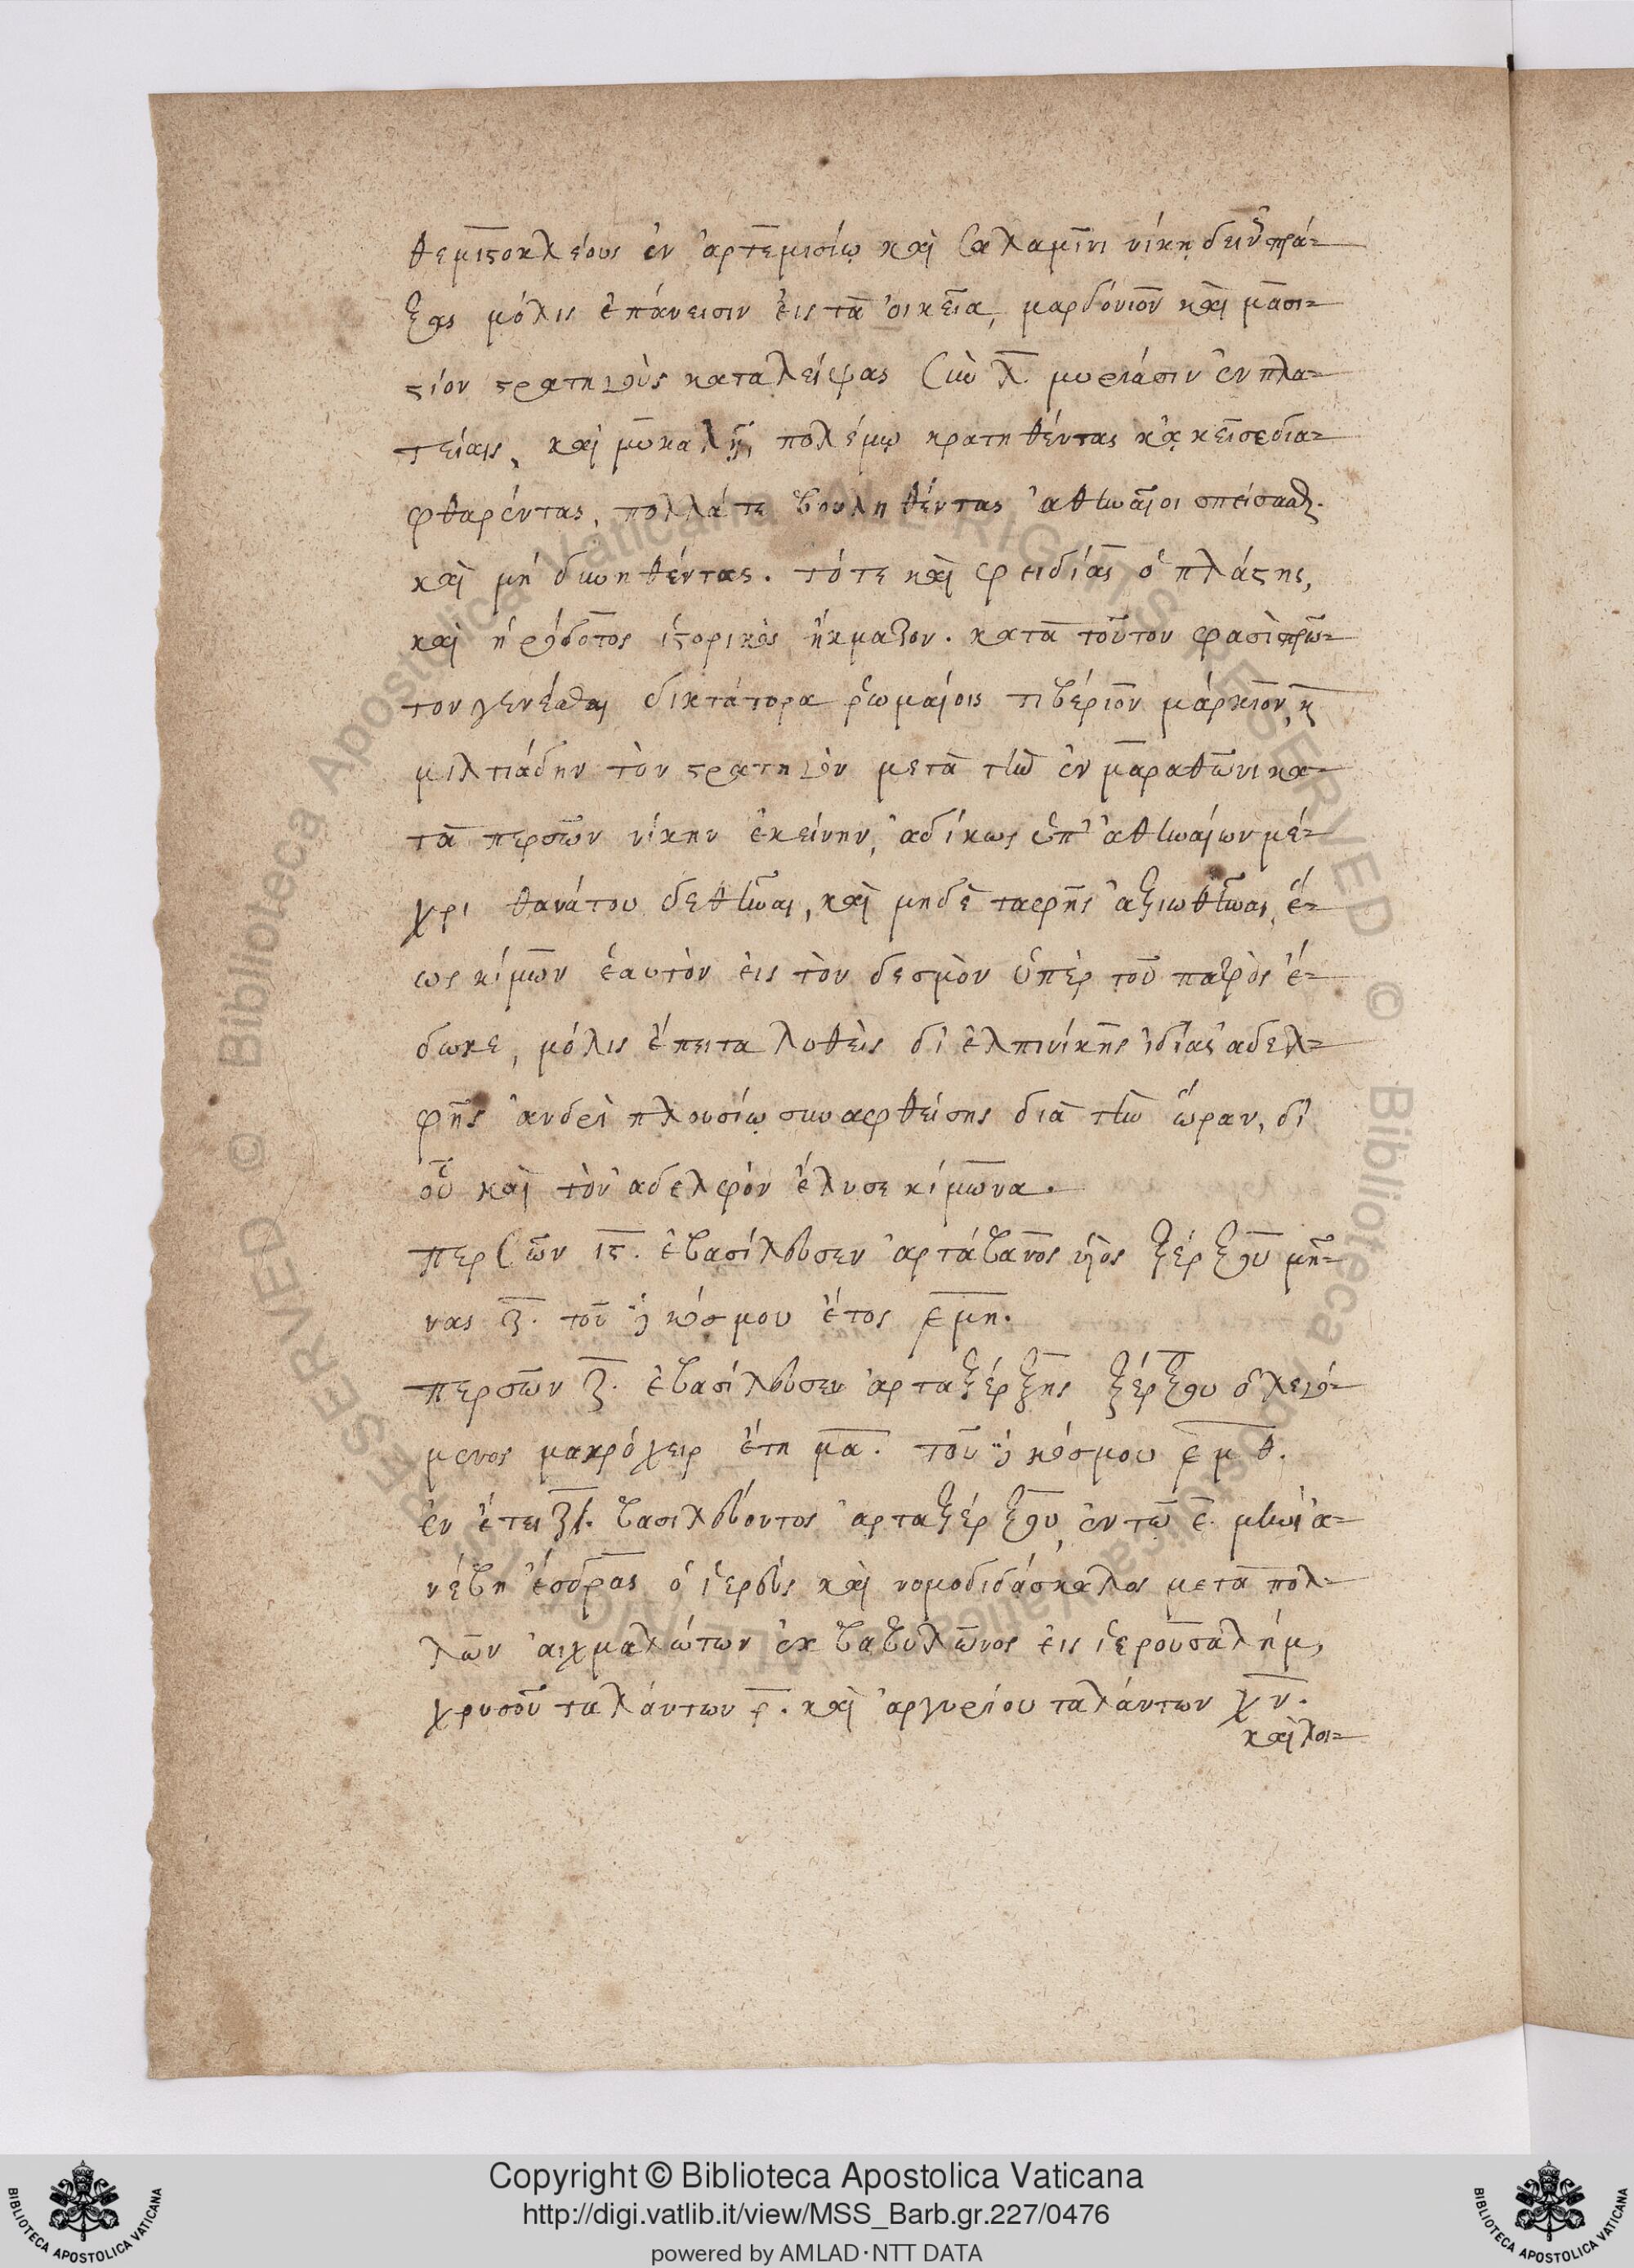 θεμιστοκλέους ἐν ἀρτεμισίῳ καὶ σαλαμῖνι νίκῃ δεινὰ πρά=
ξας μόλις ἐπάνεισιν εἰς τὰ οἰκεῖα, μαρδόνιον καὶ μασι=
στίον στρατηγοὺς καταλείψας σὺν λ̅. μυριάσιν ἐν πλα=
τείαις, καὶ μυκαλῇ, πολέμῳ κρατηθέντας κᾀκεῖσε δια=
φθαρέντας, πολλά τε βουληθέντας ἀθηναίοι σπείσασθαι.
καὶ μὴ δυνηθέντας. τότε καὶ φειδίας ὁ πλάστης,
καὶ ἡρόδοτος ἱστορικὸς ἤκμαζον. κατὰ τοῦτον φασὶ πρῶ=
τον γενέσθαι δικτάτορα ῥωμαίοις τιβέριον μάρκιον, καὶ
μιλτιάδην τὸν στρατηγὸν μετὰ τὴν ἐν μαραθῶνι κα=
τὰ περσῶν νίκην ἐκείνην, ἀδίκως ὑπ' ἀθηναίων μέ=
χρι θανάτου δεθῆναι, καὶ μηδὲ ταφῆς ἀξιωθῆναι, ἕ=
ως κίμων ἑαυτὸν εἰς τὸν δεσμὸν ὑπὲρ τοῦ πατρὸς ἔ=
δωκε, μόλις ἔπειτα λυθεὶς δι' ἐλπινίκης ἰδίας ἀδελ=
φῆς ἀνδρὶ πλουσίῳ συναφθείσης διὰ τὴν ὥραν, δι'
οὗ καὶ τὸν ἀδελφὸν ἔλυσε κίμωνα.
περσῶν ις̅. ἐβασίλευσεν ἀρτάβανος υἱὸς ξέρξου μῆ=
νας ζ̅. τοῦ δὲ κόσμου ἔτος ͵εμη.
περσῶν ζ̅. ἐβασίλευσεν ἀρταξέρξης ξέρξου ὁ λεγό=
μενος μακρόχειρ ἔτη μα̅. τοῦ δὲ κόσμου ͵εμθ.
ἐν ἔτει ζ̅. βασιλεύοντος ἀρταξέρξου, ἐν τῷ ε̅. μηνὶ ἀ=
νέβη ἔσδρας ὁ ἱερεὺς καὶ νομοδιδάσκαλος μετὰ πολ=
λῶν αἰχμαλώτων ἐκ βαβυλῶνος εἰς ἱερουσαλήμ,
χρυσοῦ ταλάντων ρ̅. καὶ ἀργυρίου ταλάντων χν̅.
καὶ λοι=
Copyright © Biblioteca Apostolica Vaticana
http://digi.vatlib.it/view/MSS_Barb.gr.227/0476
powered by AMLAD·NTT DATA
BIBLIOTECA APOSTOLICA VATICANA
BIBLIOTECA APOSTOLICA VATICANA
© Biblioteca Apostolica Vaticana ALL RIGHTS RESERVED
© Biblioteca Apostolica Vaticana ALL RIGHTS RESERVED